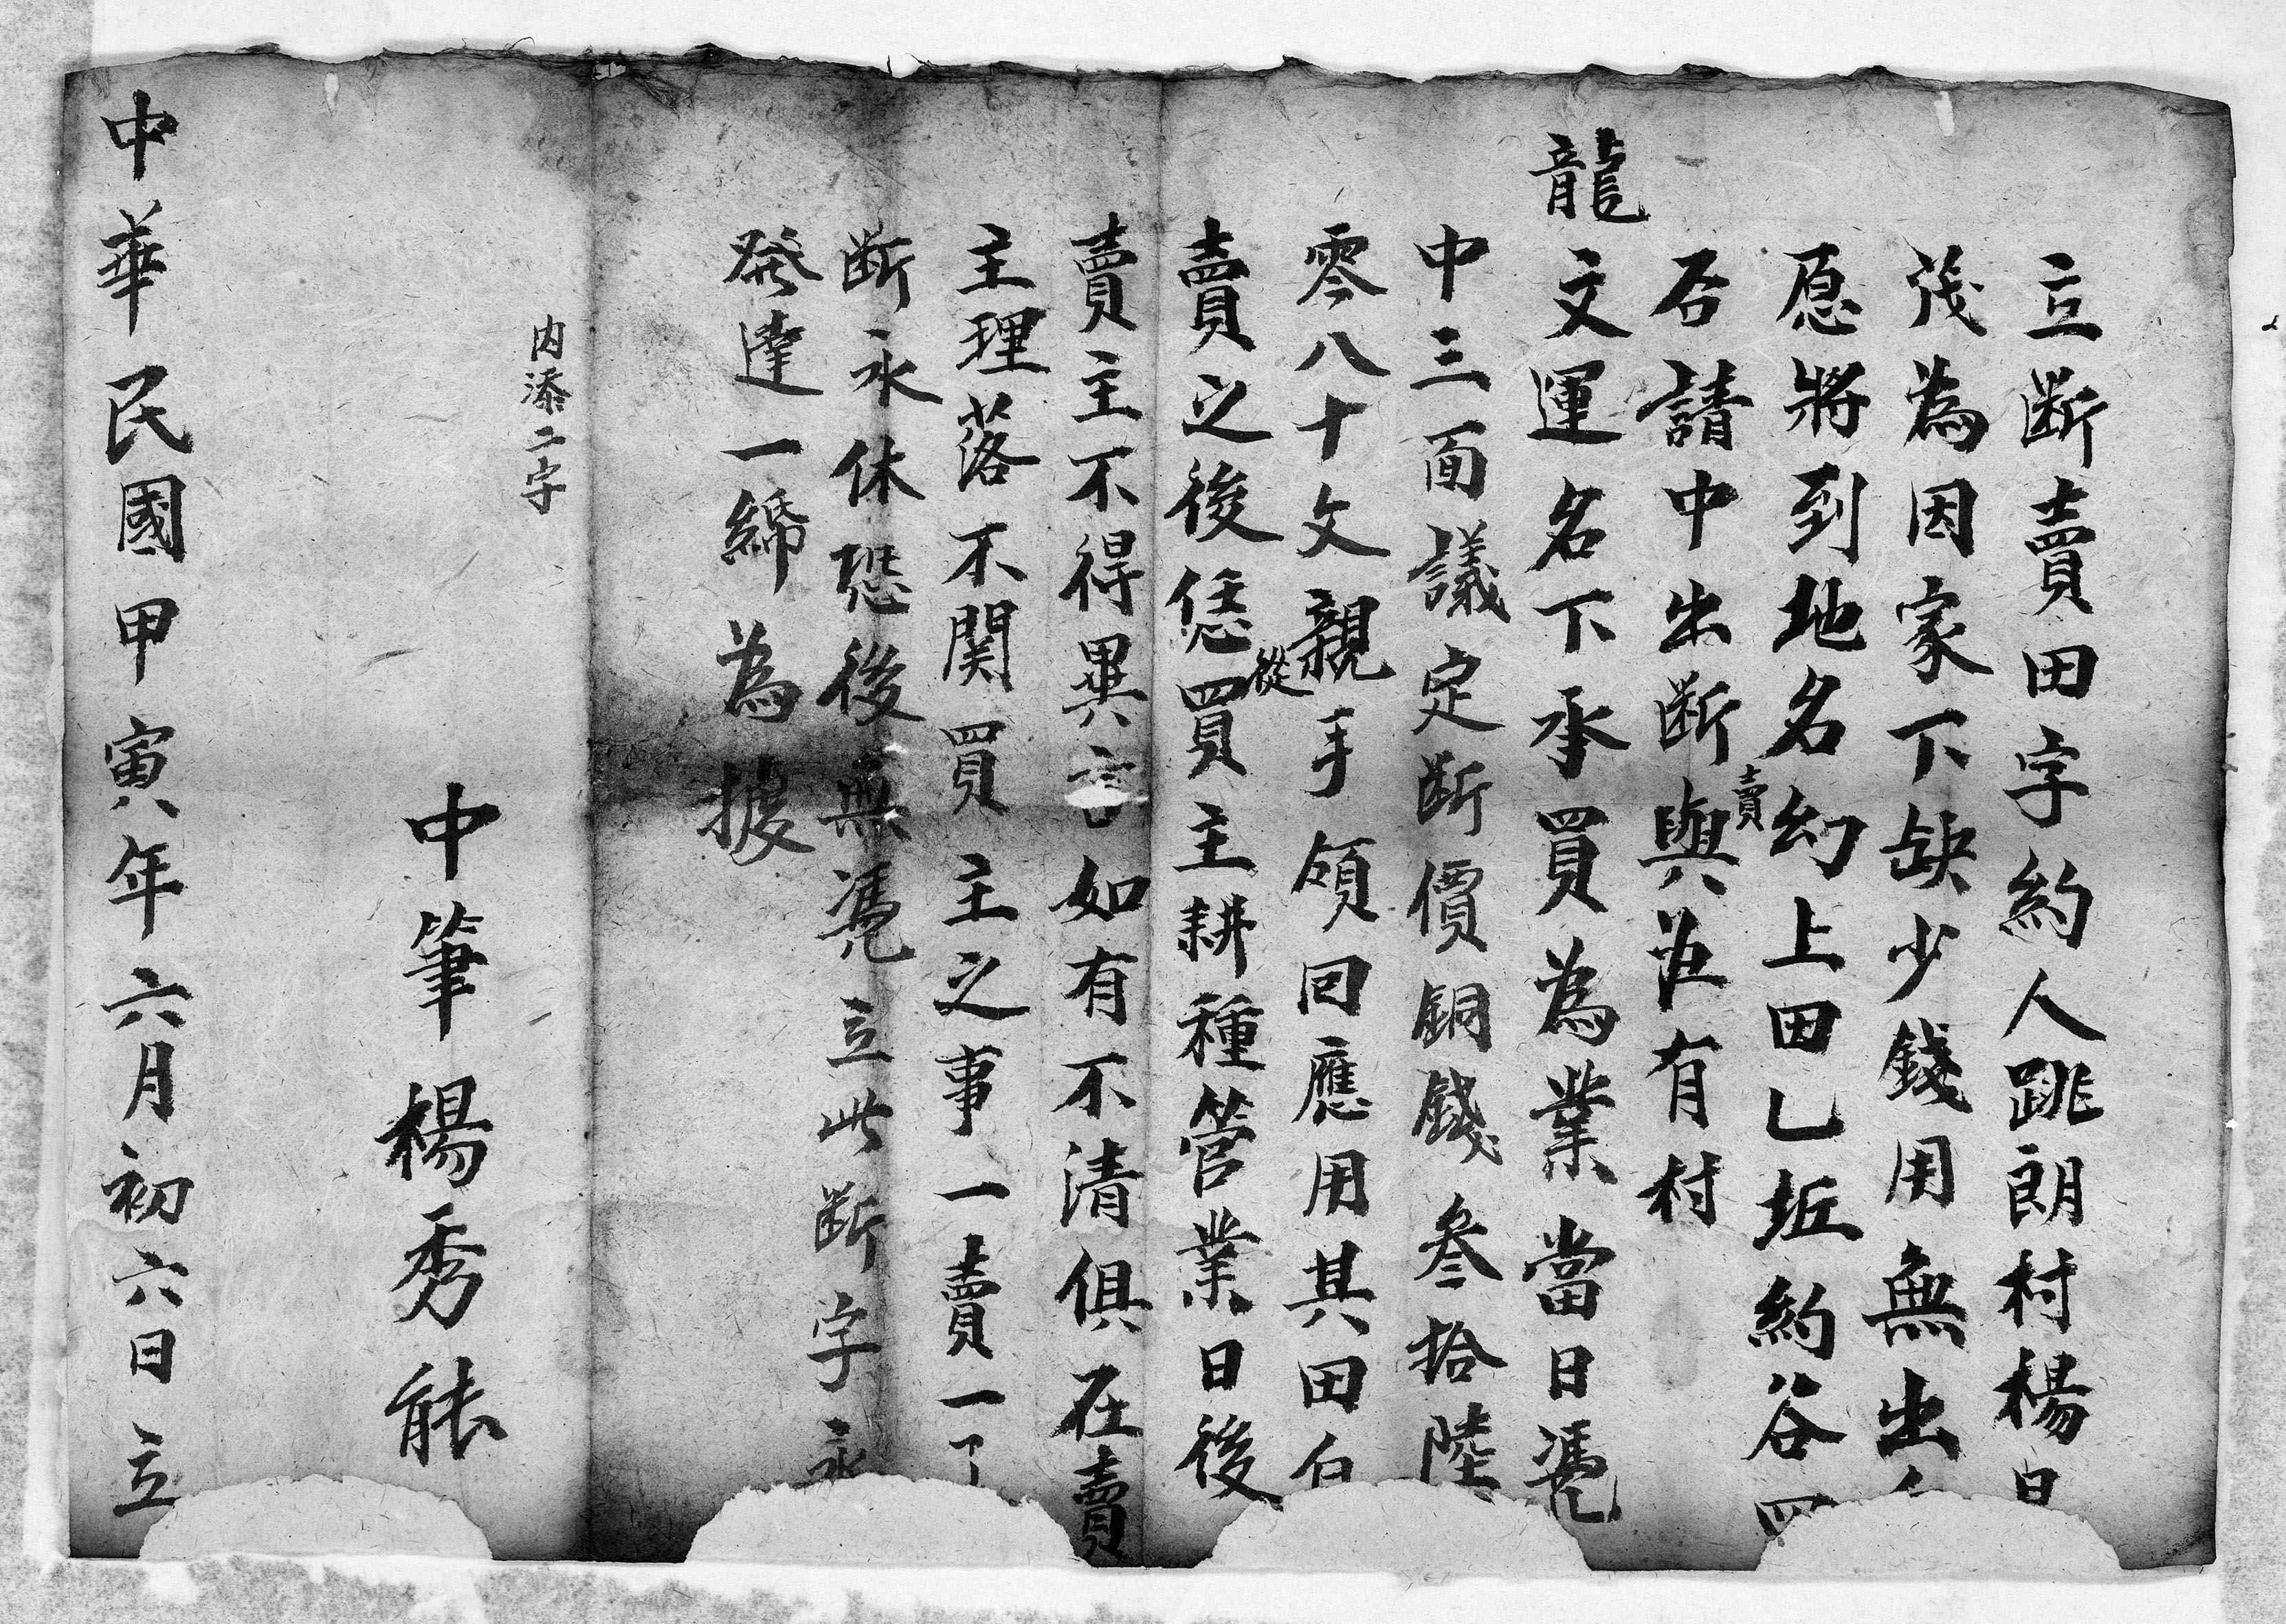 立断賣田字約人跳朗村楊
茂為因家下缺少錢用無出
愿將到地名幻上田乚坵約谷四
否請中出断賣與茳有村
龍文運名下承買為業當日憑
中三面議定断價銅錢叁拾陸
零八十文親手領回應用其田自
賣之後恁從買主耕種管業日後
賣主不得異言如有不清俱在賣
主理落不関買主之事一賣一了
断永休恐後無憑立此断字永
發達一綿為據
内添二字
中筆楊秀能
中華民國甲寅年六月初六日立